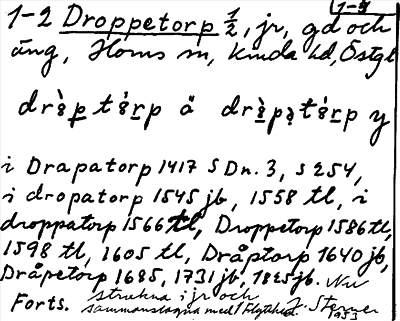 1-4
1-2 Droppetorp 1/2, jr, gd och
äng, Horns sn, Kinda hd, Östgl
drɜ̀p̱ tɜ́ṟp ä drɜ̀pətɜ́ṟp y
i Drapatorp 1417 SDn. 3, s 254,
i dropatorp 1545 jb, 1558 tl, i
droppatorp 1566 tl, Droppetorp 1586 tl,
1598 tl, 1605 tl, Dråptorp 1640 jb,
Dråpetorp 1685, 1731 jb, 1825 jb. Nu
Forts. strukna i jr och
sammanslagna med Flythed.